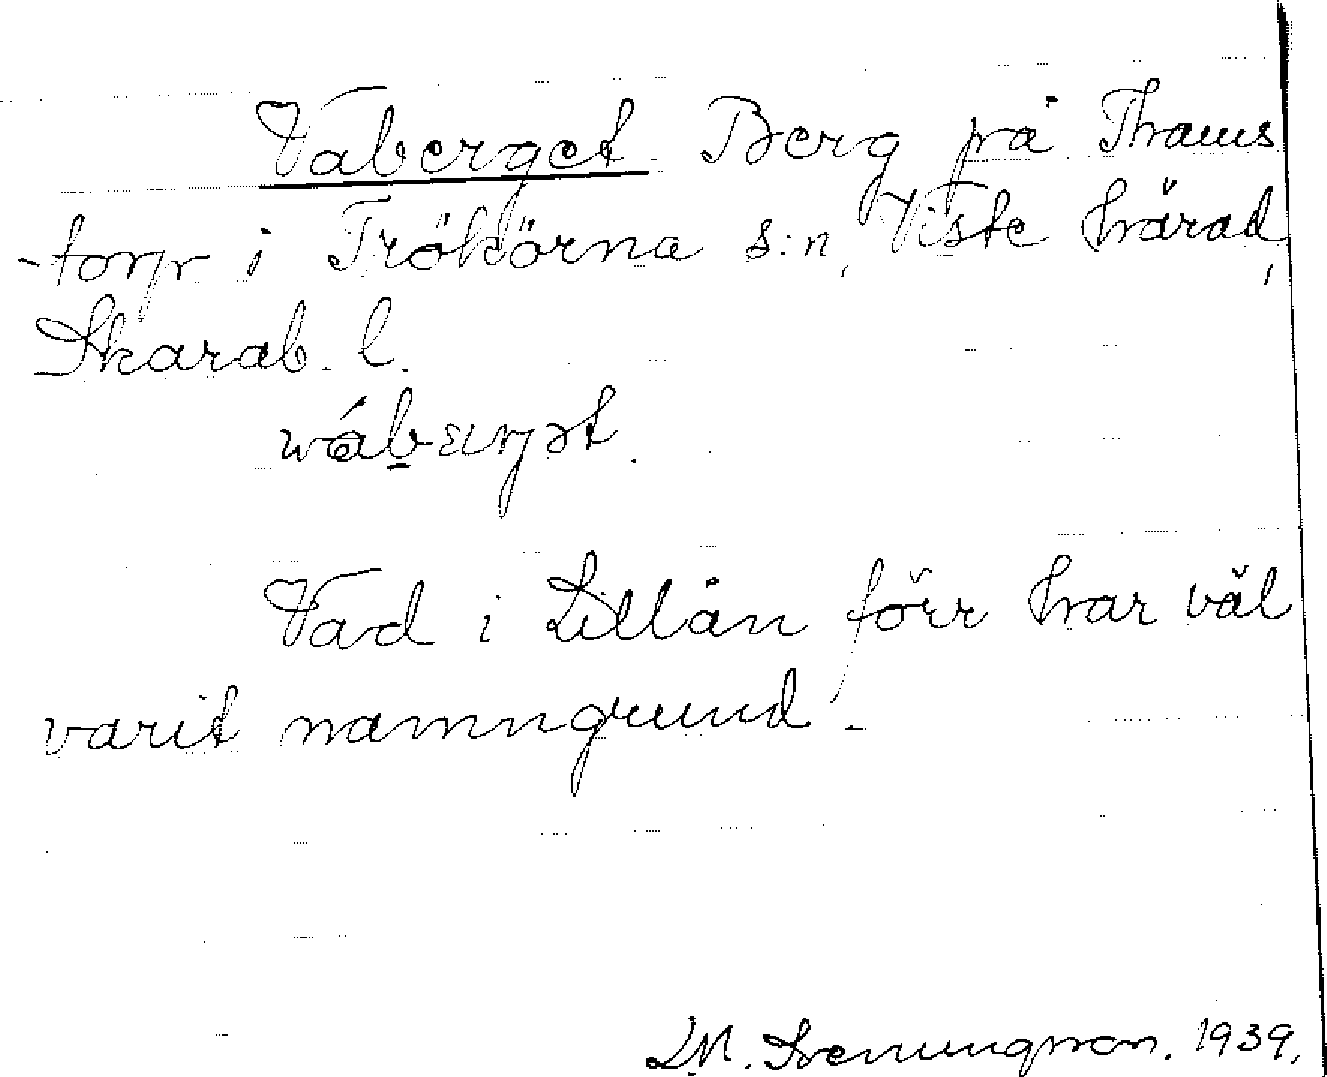 Vaberget Berg på Thams
-torp i Trökörna s:n, Viste härad,
Skarab. l.
Vad i Lillån förr har väl
varit namngrund.
L.M. Svenungsson. 1939.